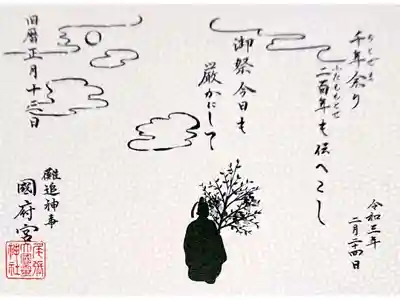 千年余り
ふたももとせ
二百年も伝へこし
御祭今日も
厳かにして
旧暦正月十三日
令和三年
二月二十四日
儺追神事
國府宮
尾張
大國霊
神社